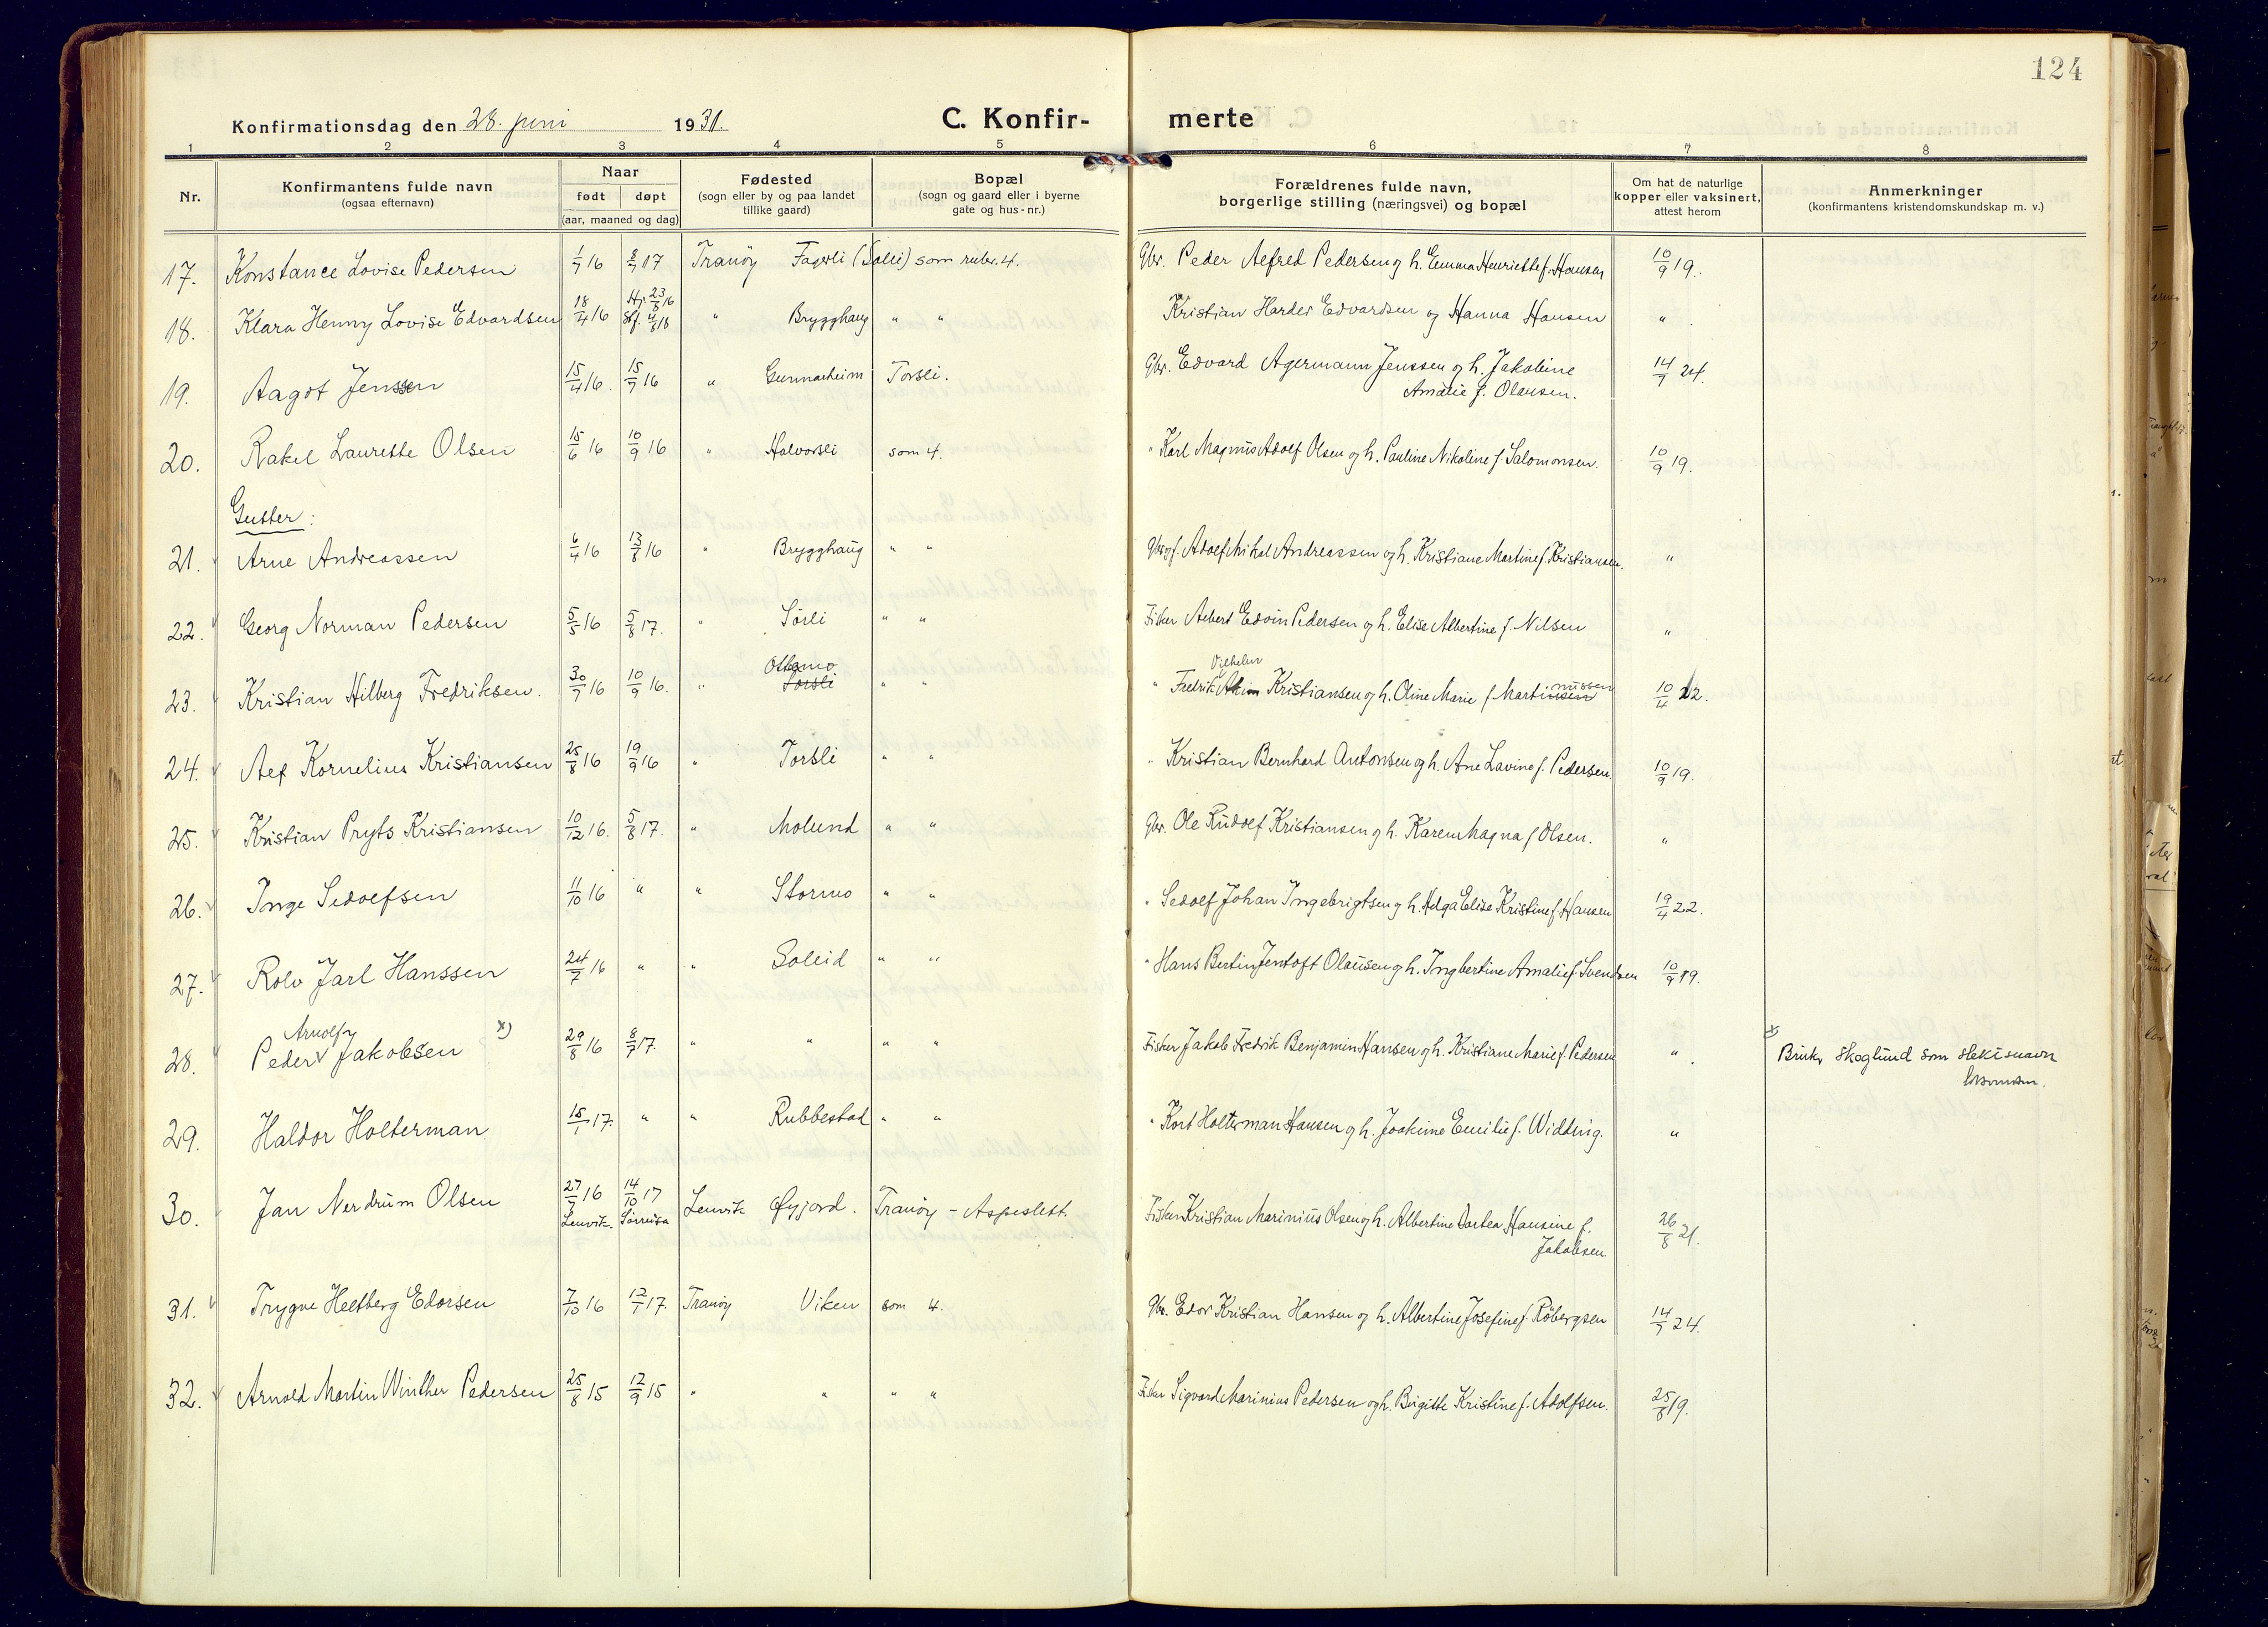 124
Konfirmationsdag den 28. juni 1931.
C. Konfir- merte
1 2 3 4 5 6 7 8
Nr.
Konfirmantens fulde navn
(ogsaa efternavn)
Naar
født døpt
(aar, maaned og dag)
Fødested
(sogn eller by og paa landet
tillike gaard)
Bopæl
(sogn og gaard eller i byerne
gate og hus-nr.)
Forældrenes fulde navn,
borgerlige stilling (næringsvei) og bopæl
Om hat de naturlige
kopper eller vaksinert,
attest herom
Anmerkninger
(konfirmantens kristendomskundskap m. v.)
17. Konstance Lovise Pedersen 1/7 16 8/7 17 Tranøy Fagerli (Solli) som rubr. 4. Gbr. Peder Alfred Pedersen og h. Emma Henriette f. Hansen 10/9 19.
18. Klara Henny Lovise Edvardsen 18/4 16 Hj. 23/8 16 Stf. 4/8 18 " Brygghaug " " Kristian Harder Edvardsen og Hanna Hansen "
19. Aagot Jenssen 15/4 16. 15/7 16 " Gunnarheim Torsli. Gbr. Edvard Agermann Jenssen og h. Jakobine
Amalie f. Olausen. 14/7 24.
20. Rakel Laurette Olsen 15/6 16 10/9 16 " Halvorsli som 4. " Karl Magnus Adolf Olsen og h. Pauline Nikoline f. Salomonsen. 10/9 19.
Gutter:
21. Arne Andreassen 6/4 16 13/8 16 " Brygghaug " " Adolf Mikal Andreassen og h. Kristiane Martine f. Kristiansen. "
22. Georg Norman Pedersen 5/5 16 5/8 17. " Sørli " " Fisker Albert Edvin Pedersen og h. Elise Albertine f. Nilsen "
23. Kristian Hilberg Fredriksen. 30/7 16 10/9 16. " Ottermo " " " Fredrik Vilhelm Kristiansen og h. Oline Marie f. Martinussen 10/4 22.
24. Alf Kornelius Kristiansen 25/8 16 19/9 16 " Torsli " " " Kristian Bernhard Antonsen og h. Ane Lavine f. Pedersen. 10/9 19.
25. Kristian Pryts Kristiansen 10/12 16. 5/8 17. " Molund " " Gbr. Ole Rudolf Kristiansen og h. Karen Magna f Olsen. "
26. Inge Sedolfsen 11/10 16 " " Stormo " " " Sedolf Johan Ingebrigtsen og h. Helga Elise Kristine f. Hansen 19/4 22.
27. Rolv Jarl Hanssen 24/7 16 " " Sollid " " " Hans Bertin Jentoft Olausen og h. Ingbertine Amalie f Svendsen 10/9 19.
28. Peder Arnolf Jakobsen x) 29/8 16 8/7 17. " " " " Fisker Jakob Fredrik Benjamin Hansen og h. Kristiane Marie f. Pedersen " x Bruker Skoglund som slektsnavn
29. Haldor Holterman 15/1 17. " " Rubbestad " " " Kort Holterman Hansen og h. Joakime Emilie f. Widding. "
30. Jan Nerdrum Olsen 27/7 16 Lenvik. 14/10 17 Sørreisa Lenvik Øyjord. Tranøy - Aspeslett. Fisker Kristian Marinius Olsen og h. Albertine Dortea Hansine f.
Jakobsen 26/8 21.
31. Trygve Heltberg Edorsen 7/10 16 12/1 17. Tranøy Viken som 4. Gbr. Edor Kristian Hansen og h. Albertine Josefine f. Röbergsen 14/7 24.
32. Arnold Martin Winther Pedersen 25/8 15 12/9 15 " " " " Fisker Sigvard Marinius Pedersen og h. Birgitte Kristine f. Adolfsen. 25/8 19.